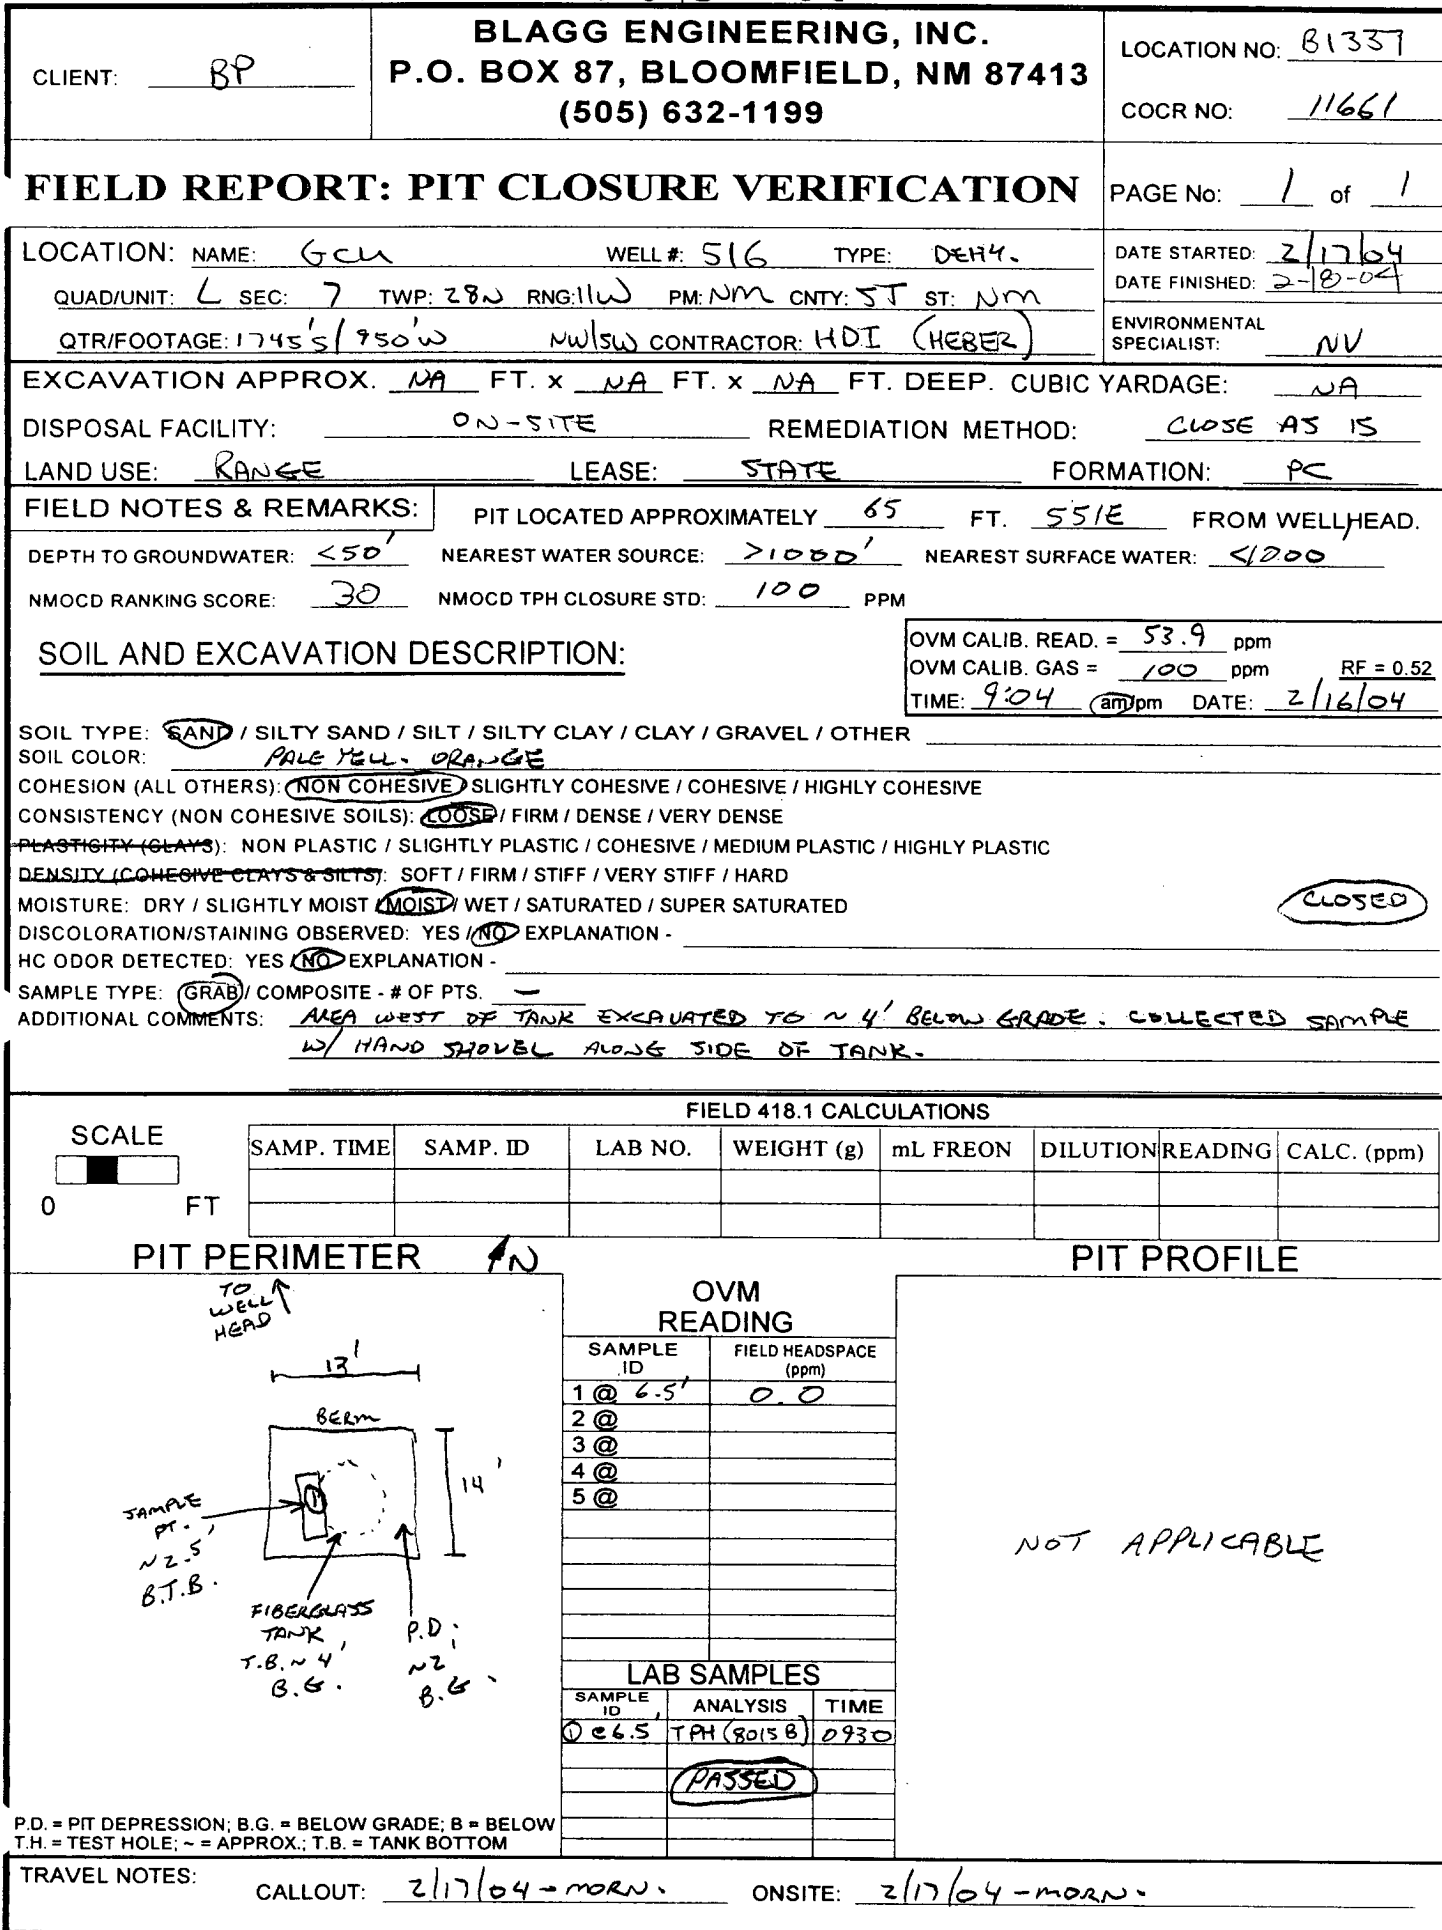 BLAGG ENGINEERING, INC.
P.O. BOX 87, BLOOMFIELD, NM 87413
(505) 632-1199
CLIENT: BP
LOCATION NO: B1337
COCR NO: 11661
FIELD REPORT: PIT CLOSURE VERIFICATION
PAGE No: 1 of 1
LOCATION: NAME: GCU WELL #: 516 TYPE: DEHY.
QUAD/UNIT: L SEC: 7 TWP: 28N RNG: 11W PM: NM CNTY: SJ ST: NM
QTR/FOOTAGE: 1745'S / 950'W NW/SW CONTRACTOR: HDI (HEBER)
DATE STARTED: 2/17/04
DATE FINISHED: 2-18-04
ENVIRONMENTAL
SPECIALIST: NV
EXCAVATION APPROX. NA FT. x NA FT. x NA FT. DEEP. CUBIC YARDAGE: NA
DISPOSAL FACILITY: ON-SITE REMEDIATION METHOD: CLOSE AS IS
LAND USE: RANGE LEASE: STATE FORMATION: PC
FIELD NOTES & REMARKS: PIT LOCATED APPROXIMATELY 65 FT. S51E FROM WELLHEAD.
DEPTH TO GROUNDWATER: <50' NEAREST WATER SOURCE: >1000' NEAREST SURFACE WATER: <1000
NMOCD RANKING SCORE: 30 NMOCD TPH CLOSURE STD: 100 PPM
SOIL AND EXCAVATION DESCRIPTION:
OVM CALIB. READ. = 53.9 ppm
OVM CALIB. GAS = 100 ppm RF = 0.52
TIME: 9:04 am/pm DATE: 2/16/04
SOIL TYPE: SAND / SILTY SAND / SILT / SILTY CLAY / CLAY / GRAVEL / OTHER
SOIL COLOR: PALE YELL. ORANGE
COHESION (ALL OTHERS): NON COHESIVE / SLIGHTLY COHESIVE / COHESIVE / HIGHLY COHESIVE
CONSISTENCY (NON COHESIVE SOILS): LOOSE / FIRM / DENSE / VERY DENSE
PLASTICITY (CLAYS): NON PLASTIC / SLIGHTLY PLASTIC / COHESIVE / MEDIUM PLASTIC / HIGHLY PLASTIC
DENSITY (COHESIVE CLAYS & SILTS): SOFT / FIRM / STIFF / VERY STIFF / HARD
MOISTURE: DRY / SLIGHTLY MOIST / MOIST / WET / SATURATED / SUPER SATURATED
CLOSED
DISCOLORATION/STAINING OBSERVED: YES / NO EXPLANATION -
HC ODOR DETECTED: YES / NO EXPLANATION -
SAMPLE TYPE: GRAB / COMPOSITE - # OF PTS. —
ADDITIONAL COMMENTS: AREA WEST OF TANK EXCAVATED TO ~ 4' BELOW GRADE. COLLECTED SAMPLE
W/ HAND SHOVEL ALONG SIDE OF TANK.
FIELD 418.1 CALCULATIONS
SCALE
0 FT
SAMP. TIME SAMP. ID LAB NO. WEIGHT (g) mL FREON DILUTION READING CALC. (ppm)
PIT PERIMETER N
PIT PROFILE
TO
WELL
HEAD
13'
BERM
14'
SAMPLE
PT.
~2.5'
B.T.B.
1
FIBERGLASS
TANK
T.B. ~ 4'
B.G.
P.D.
~2'
B.G.
OVM
READING
SAMPLE ID FIELD HEADSPACE (ppm)
1 @ 6.5' 0.0
2 @
3 @
4 @
5 @
NOT APPLICABLE
LAB SAMPLES
SAMPLE ID ANALYSIS TIME
① @ 6.5' TPH (8015B) 0930
PASSED
P.D. = PIT DEPRESSION; B.G. = BELOW GRADE; B = BELOW
T.H. = TEST HOLE; ~ = APPROX.; T.B. = TANK BOTTOM
TRAVEL NOTES: CALLOUT: 2/17/04 - MORN. ONSITE: 2/17/04 - MORN.